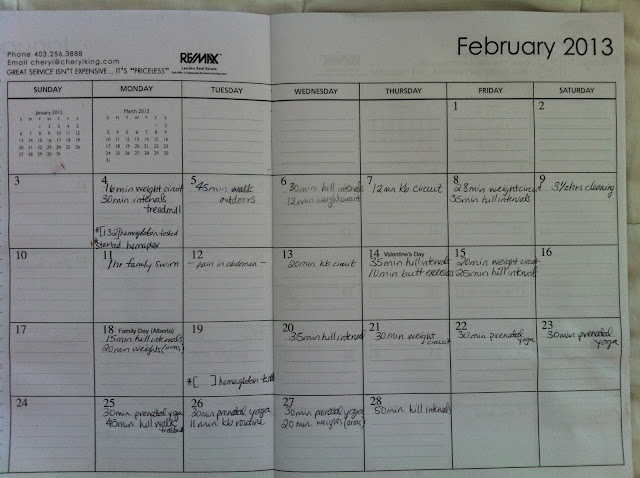 Phone 403.256.3888
Email cheryl@cherylking.com
GREAT SERVICE ISN'T EXPENSIVE... IT'S "PRICELESS"
RE/MAX
Landan Real Estate
February 2013
SUNDAY MONDAY TUESDAY WEDNESDAY THURSDAY FRIDAY SATURDAY
January 2013
S M T W T F S
1 2 3 4 5
6 7 8 9 10 11 12
13 14 15 16 17 18 19
20 21 22 23 24 25 26
27 28 29 30 31
March 2013
S M T W T F S
1 2
3 4 5 6 7 8 9
10 11 12 13 14 15 16
17 18 19 20 21 22 23
24 25 26 27 28 29 30
31
1
2
3
4
16min weight circuit
30min intervals
treadmill
*[132] hemoglobin tested
*started hemaplex
5
45min walk
outdoors
6
30min hill intervals
12min weight circuit
7
12min kb circuit
8
28min weight circuit
35min hill intervals
9
3½hrs cleaning
10
11
1hr family swim
12
- pain in abdomen -
13
20min kb circuit
14 Valentine's Day
35min hill intervals
10min butt exercises
15
20min weight circuit
25min hill intervals
16
17
18 Family Day (Alberta)
15min hill intervals
20min weights (arms)
19
*[ ] hemaglobin
20
35min hill interval
21
30min weight
circuit
22
30min prenatal
yoga
23
30min prenatal
yoga
24
25
30min prenatal yoga
45min hill walk
treadmill
26
30min prenatal yoga
11min kb routine
27
30min prenatal yoga
20min weights (arms)
28
50min hill intervals